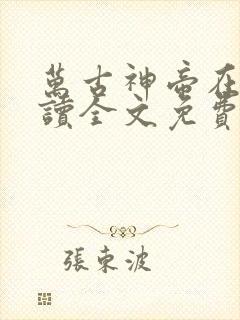 萬古神帝在
讀全文免費
張東波